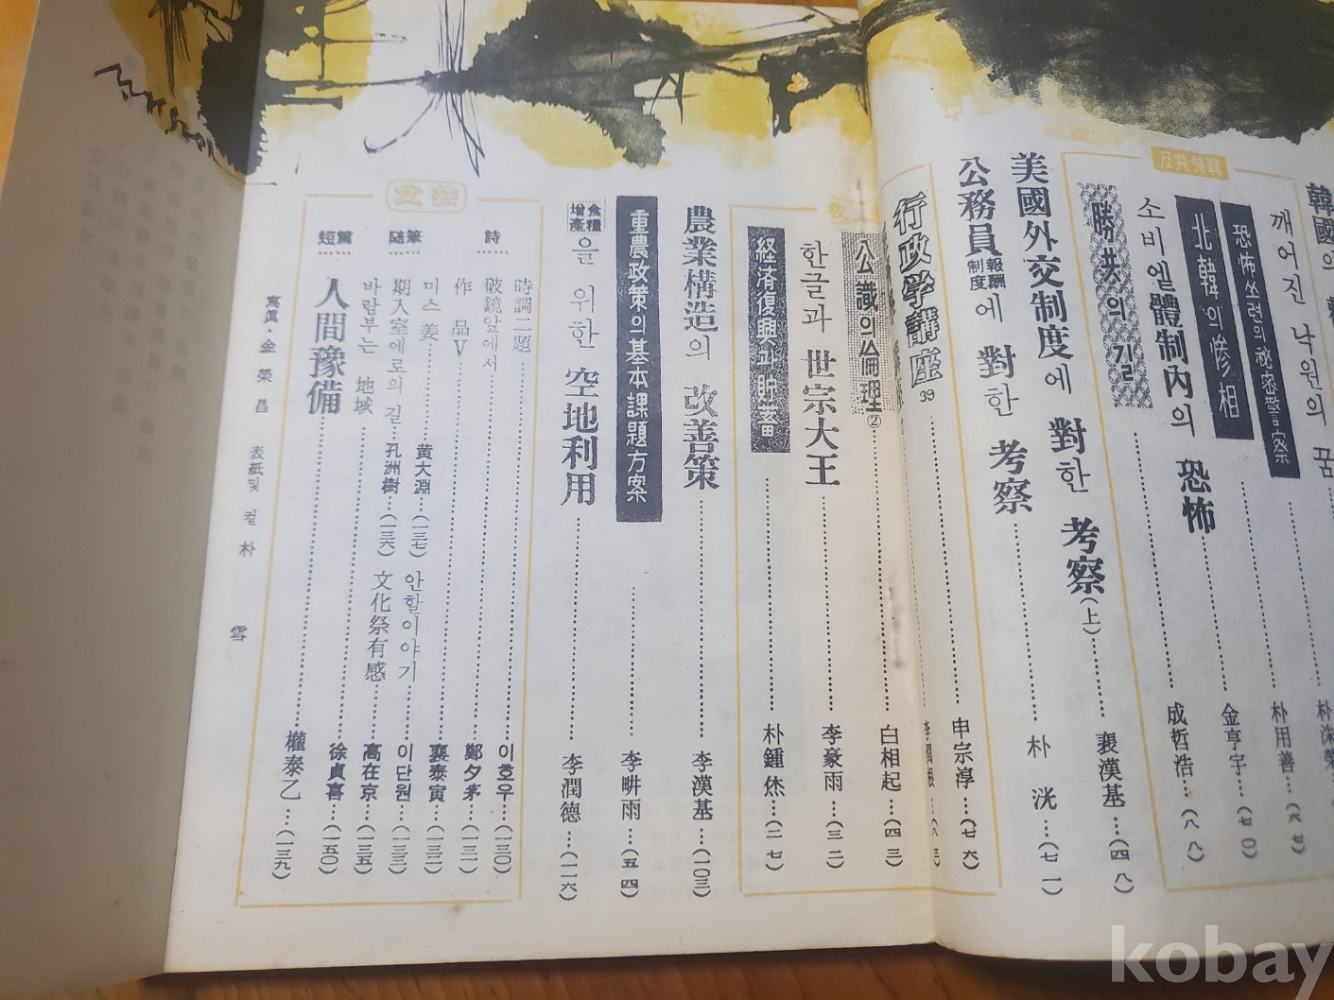 韓國의
깨어진 낙원의 꿈
朴用善…(六七)
恐怖쏘련의 祕密警察
北韓의 慘相
金亨宇…(七〇)
反共特輯
소비엘體制內의 恐怖
成哲浩…(八八)
勝共의 길
美國外交制度에 對한 考察(上)
裵漢基…(四八)
公務員報酬制度에 對한 考察
朴洸…(七一)
行政学講座 39
申宗淳…(七六)
公議의 倫理②
白相起…(四三)
한글과 世宗大王
李豪雨…(三二)
経済復興과 貯蓄
朴鍾烋…(二七)
農業構造의 改善策
李漢基…(一〇三)
重農政策의 基本課題方案
李畊雨…(五四)
食糧增產을 위한 空地利用
李潤德…(一一六)
文芸
詩
時調二題
이호우…(一三〇)
破鏡앞에서
鄭夕芽…(一三一)
作品V
裵泰寅…(一三二)
随筆
미스姜…黄大淵…(一三七)
안할이야기…이단원…(一三三)
期入室에로의 길…孔洲樹…(一三六)
文化祭有感…高在京…(一三五)
바람부는 地域
徐貞喜…(一五〇)
短篇
人間豫備
權泰乙…(一三九)
寫眞・金榮昌 表紙및 컽 朴雪
kobay